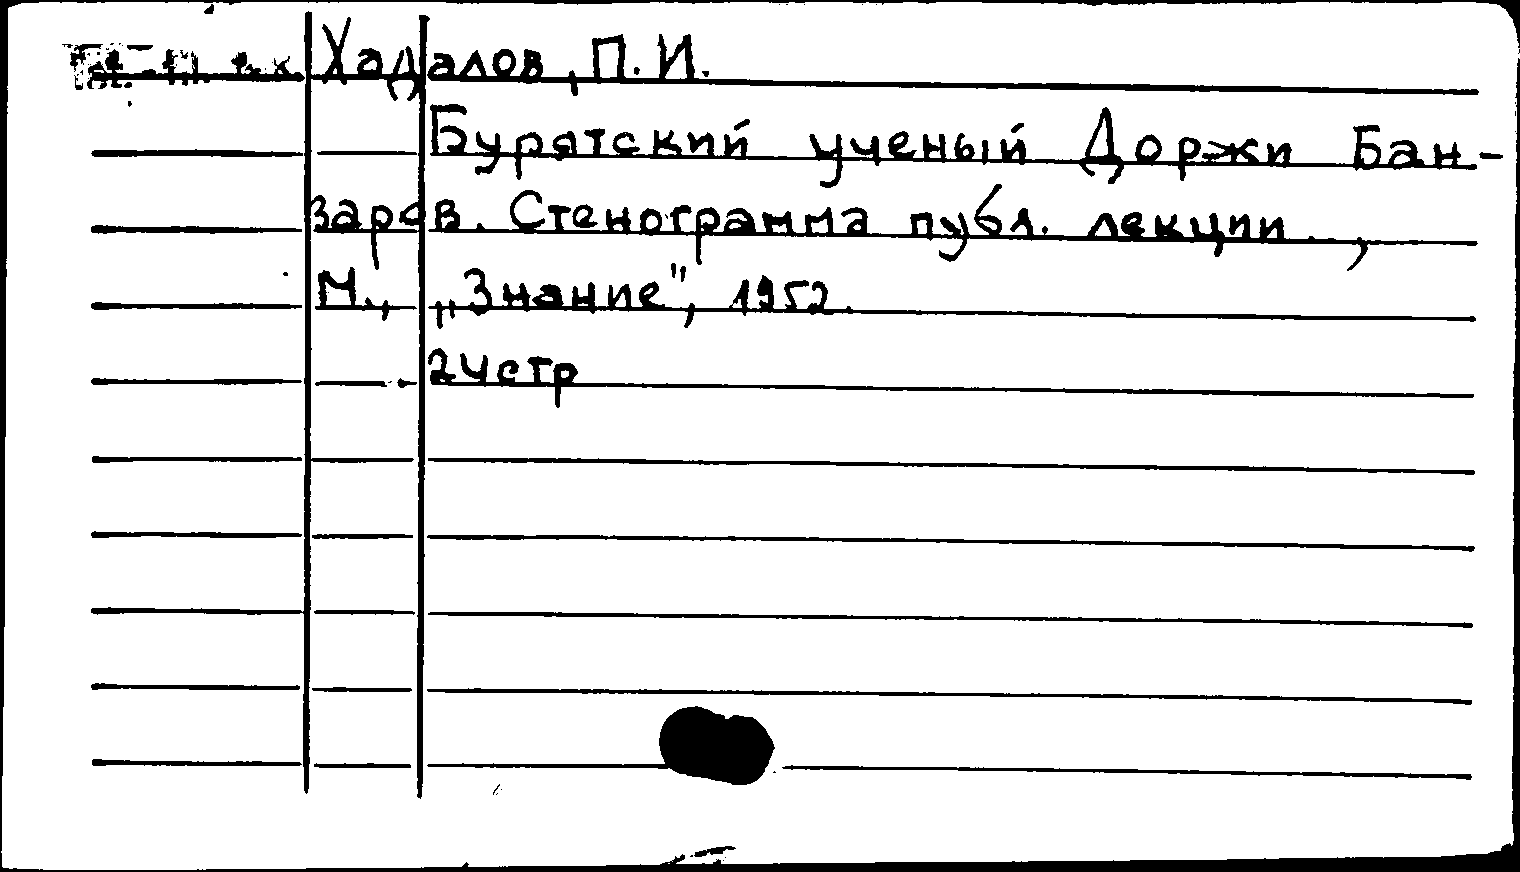 Хадалов, П. И.
Бурятский ученый Доржи Бан-
заров. Стенограмма публ. лекции,
М., „Знание", 1952.
24стр